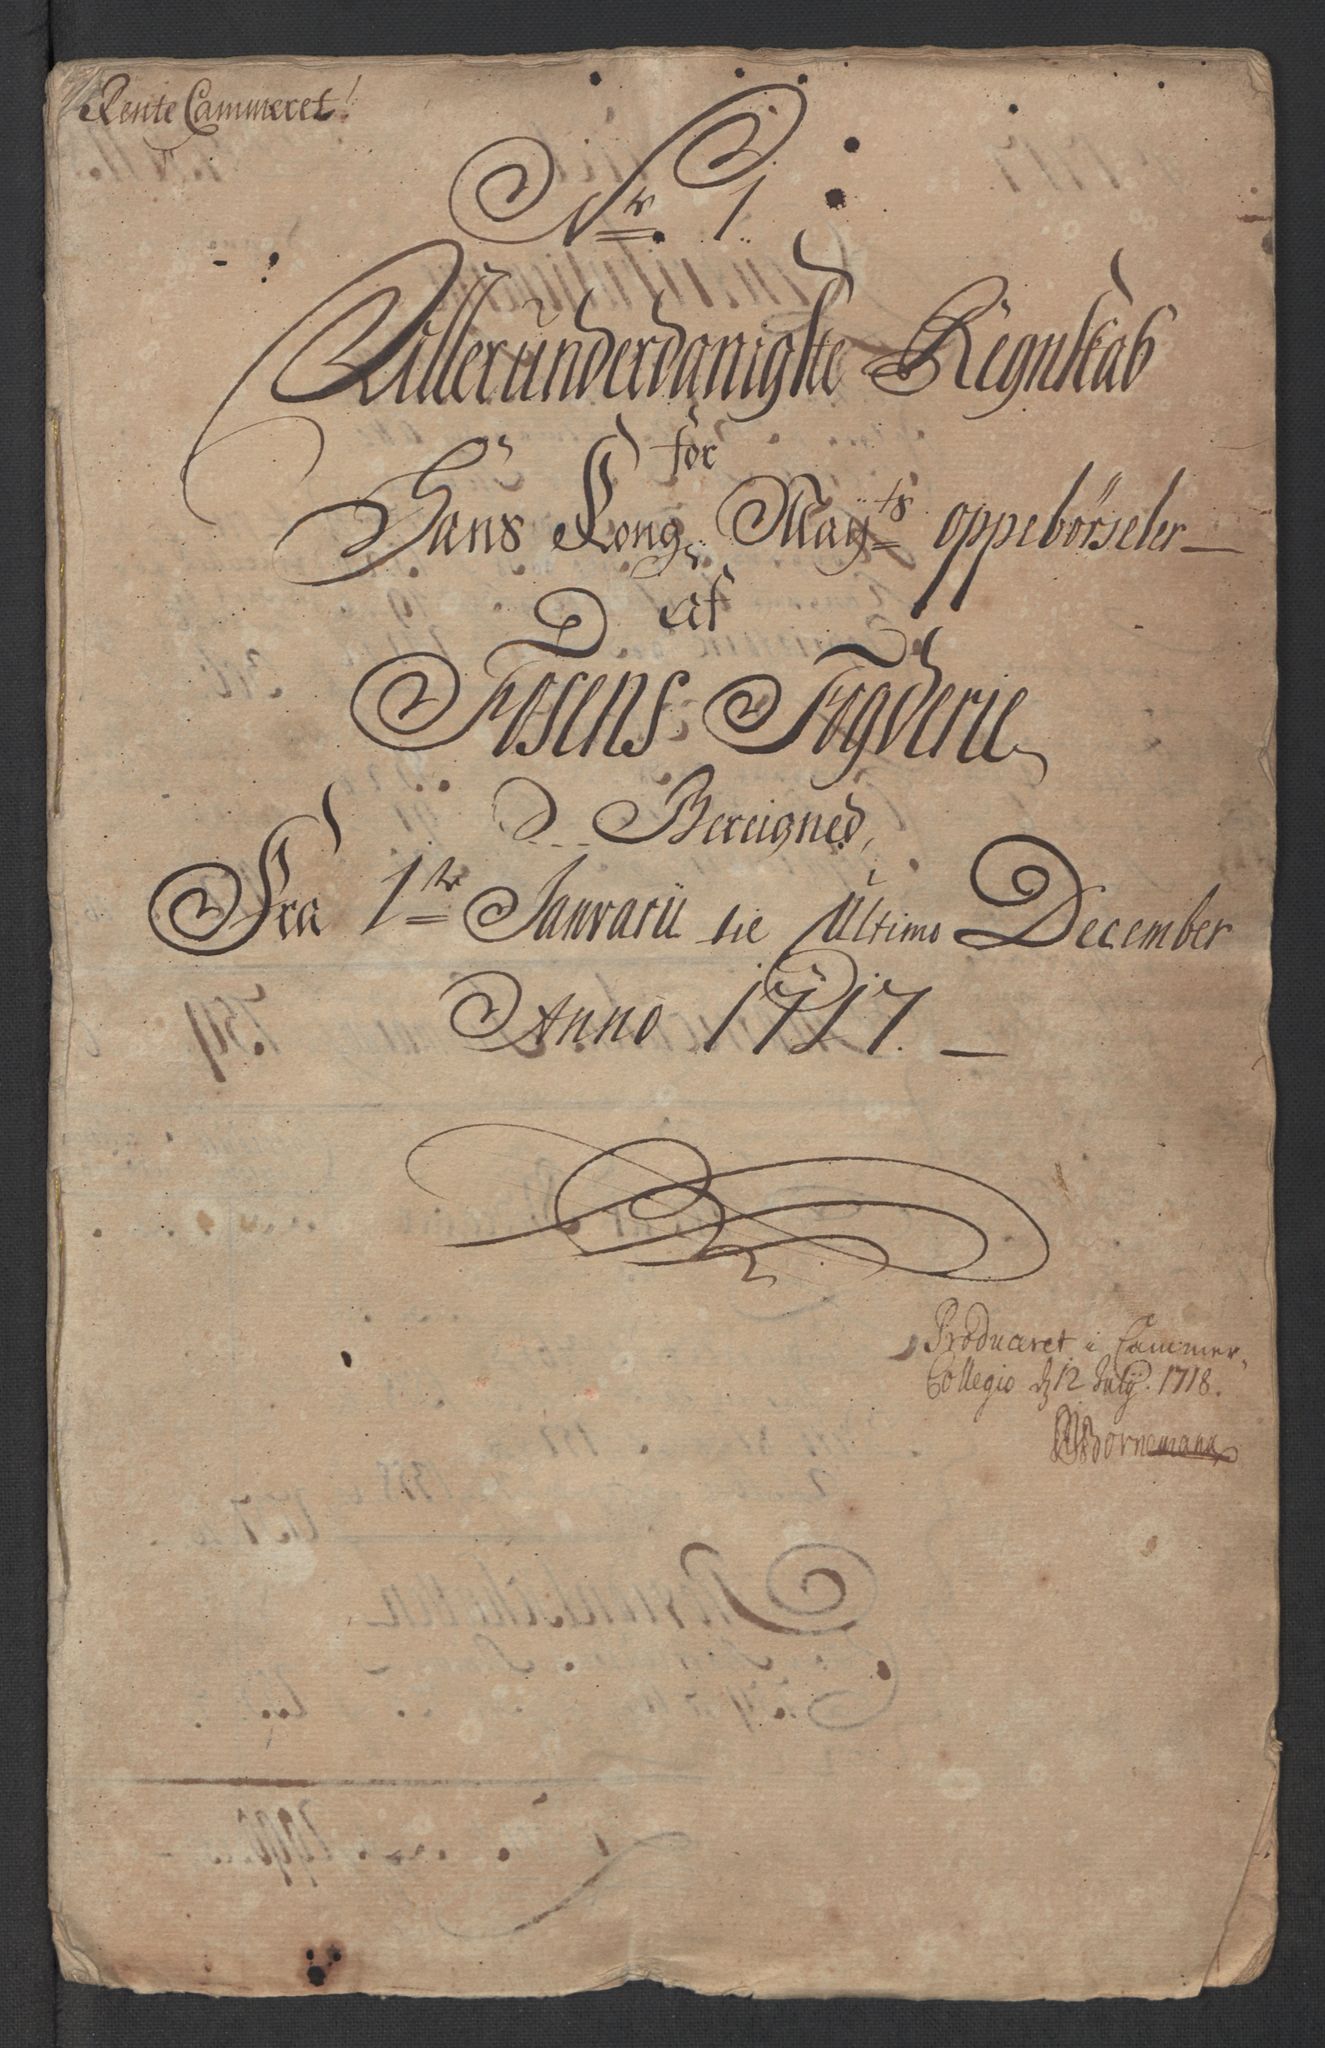 Rente Cammeret
Nr 1
Allerunderdanigste Regnskab
for
Hans Kong Mayts oppebörseler
af
Fosens Fogderie
Bereigned,
Fra 1te Januarii tie Ultimo December
Anno 1717.
Producret i Cammer-
Collegio d 12 July 1718.
Bornemann